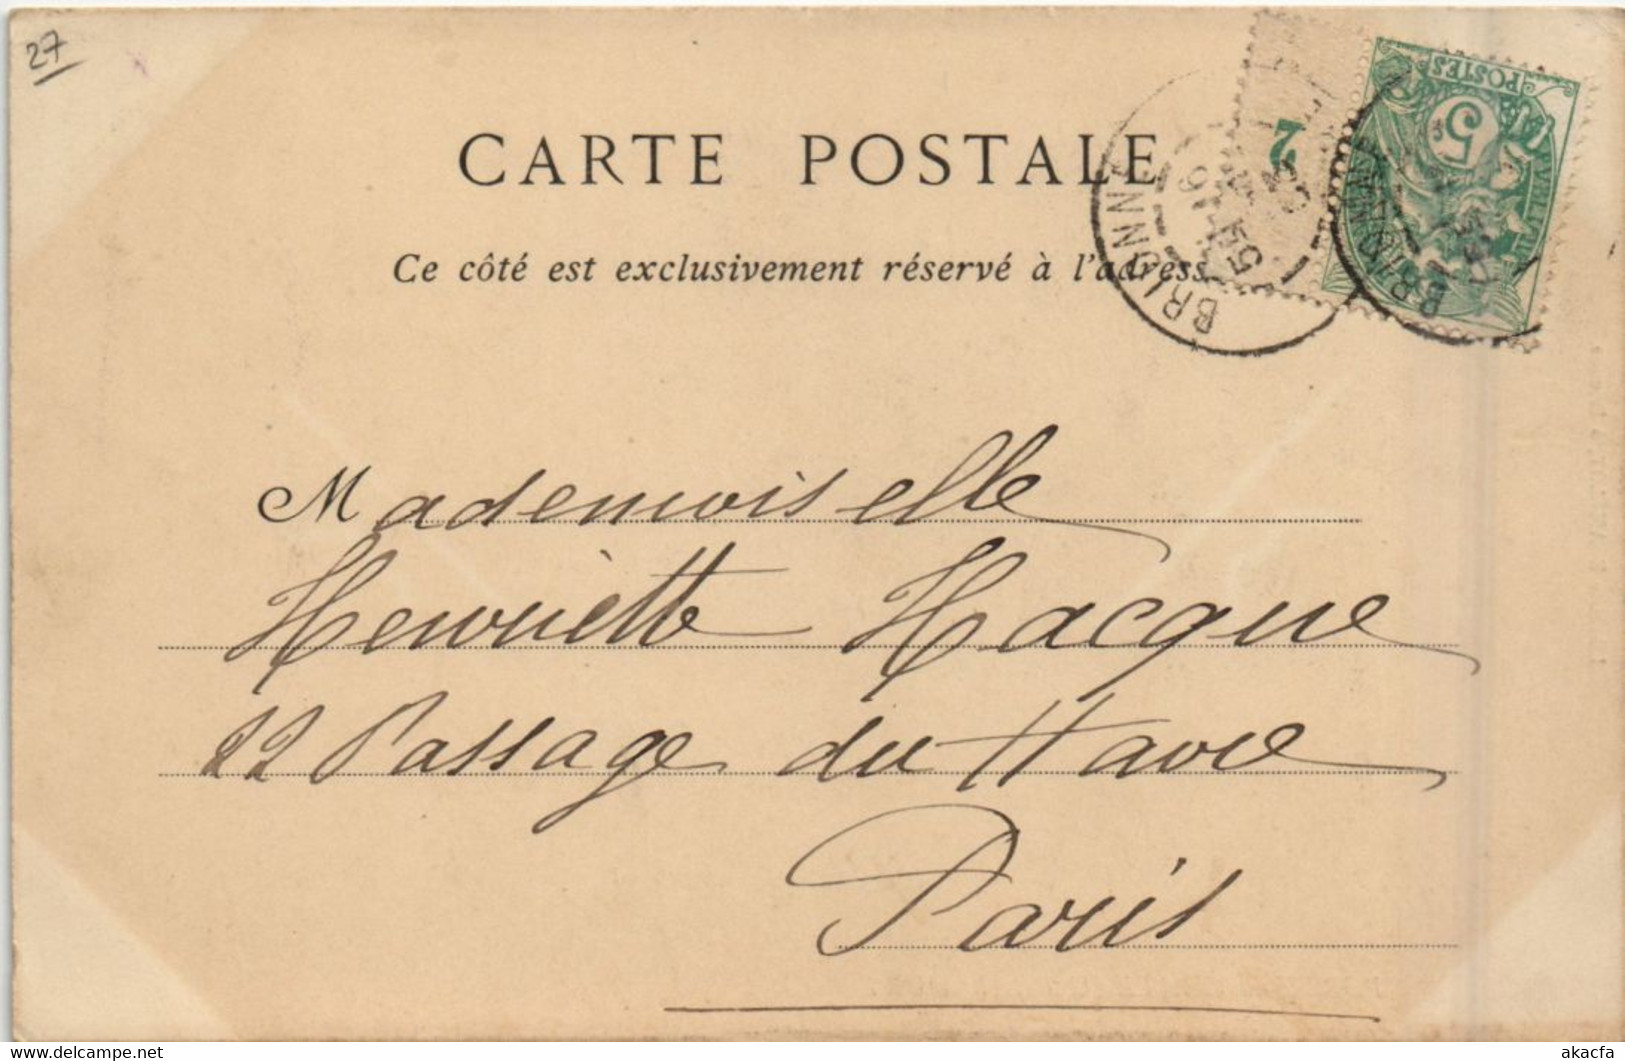 27
CARTE POSTALE
Ce côté est exclusivement réservé à l'adresse
POSTES
5
2
BRIONNE
16
5
BRIONNE
Mademoiselle
Henriette Hacque
22 Passage du Havre
Paris
akacfa